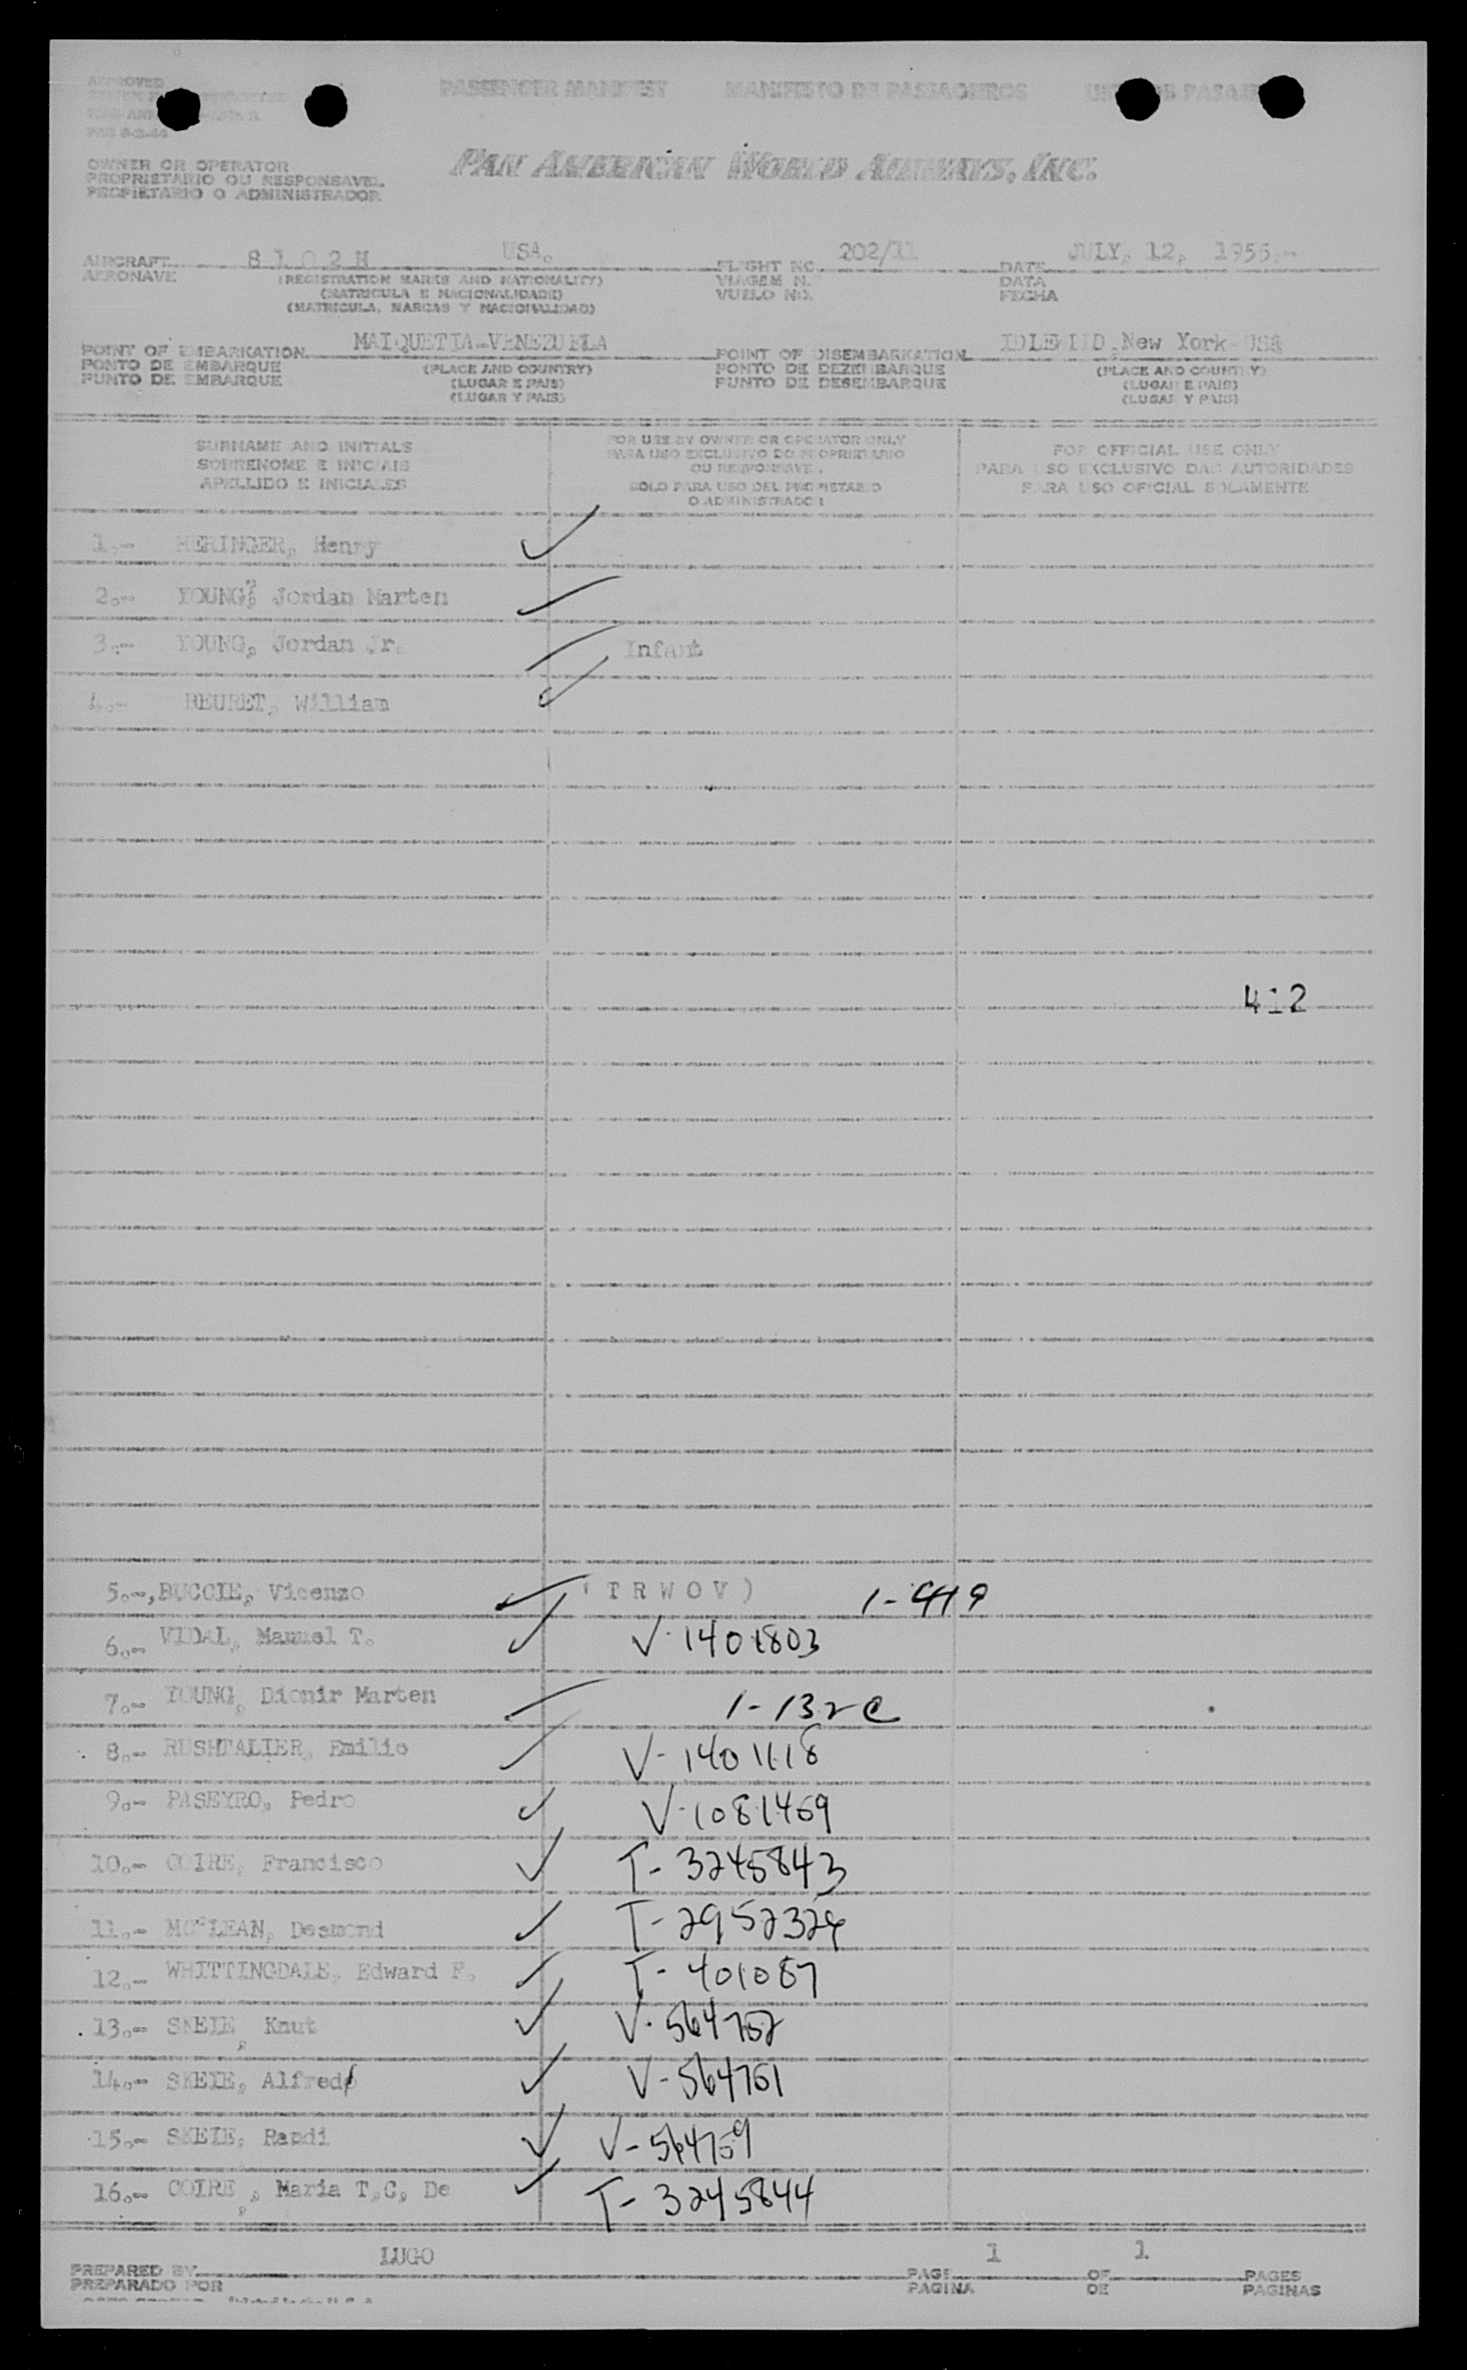 APPROVED
PASSENGER MANIFEST MANIFESTO DE PASSAGEIROS
OWNER OR OPERATOR
PROPRIETARIO OU RESPONSAVEL
PROPIETARIO O ADMINISTRADOR
PAN AMERICAN WORLD AIRWAYS, INC.
AIRCRAFT 8102H USA. FLIGHT NO. 202/11 DATE JULY, 12, 1955.-
AERONAVE (REGISTRATION MARKS AND NATIONALITY) VIAGEM N. DATA
(MATRICULA E NACIONALIDADE) VUELO NO. FECHA
(MATRICULA, MARCAS Y NACIONALIDAD)
POINT OF EMBARKATION MAIQUETIA-VENEZUELA POINT OF DISEMBARKATION IDLEWILD, New York-USA
PONTO DE EMBARQUE (PLACE AND COUNTRY) PONTO DE DEZEMBARQUE (PLACE AND COUNTRY)
PUNTO DE EMBARQUE (LUGAR E PAIS) PUNTO DE DESEMBARQUE (LUGAR E PAIS)
(LUGAR Y PAIS) (LUGAR Y PAIS)
SURNAME AND INITIALS FOR USE BY OWNER OR OPERATOR ONLY FOR OFFICIAL USE ONLY
SOBRENOME E INICIAIS PARA USO EXCLUSIVO DO PROPRIETARIO PARA USO EXCLUSIVO DAS AUTORIDADES
APELLIDO E INICIALES OU RESPONSAVEL PARA USO OFICIAL SOLAMENTE
SOLO PARA USO DEL PROPIETARIO
O ADMINISTRADOR
1.- HERINGER, Henry
2.- YOUNG, Jordan Marten
3.- YOUNG, Jordan Jr. Infant
4.- BEURET, William
412
5.-, BUCCIE, Vicenzo (TRWOV) 1-419
6.- VIDAL, Manuel T. V-1401803
7.- YOUNG, Dionir Marten 1-132c
8.- RUSHTALIER, Emilio V-1401118
9.- PASEYRO, Pedro V-1081469
10.- COIRE, Francisco T-3245843
11.- MC LEAN, Desmond T-2952324
12.- WHITTINGDALE, Edward F. T-401087
13.- SKEIE, Knut V-564762
14.- SKEIE, Alfred V-564761
15.- SKEIE, Randi V-564759
16.- COIRE, Maria T.C, De T-3245844
PREPARED BY LUGO PAGE 1 OF 1 PAGES
PREPARADO POR PAGINA DE PAGINAS